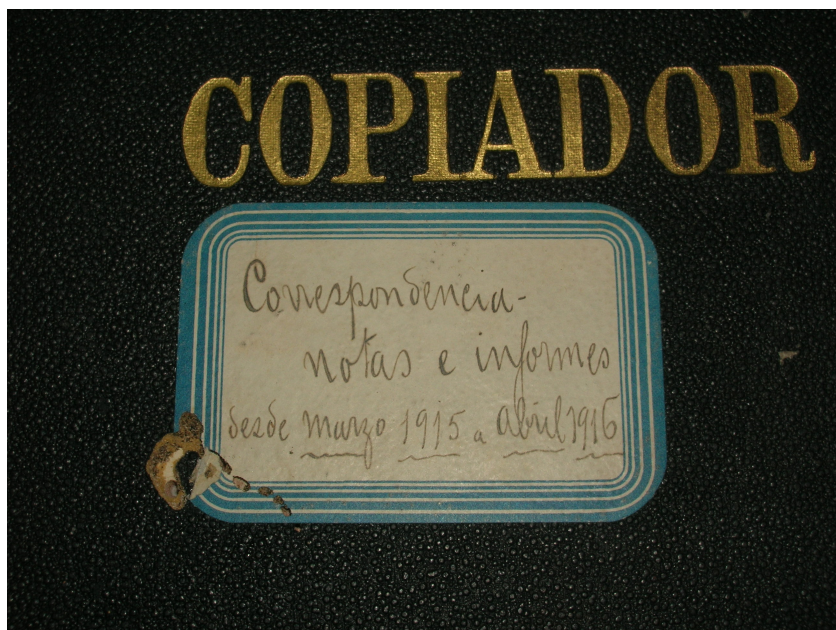 COPIADOR
Correspondencia-
notas e informes
desde marzo 1915 a abril 1916